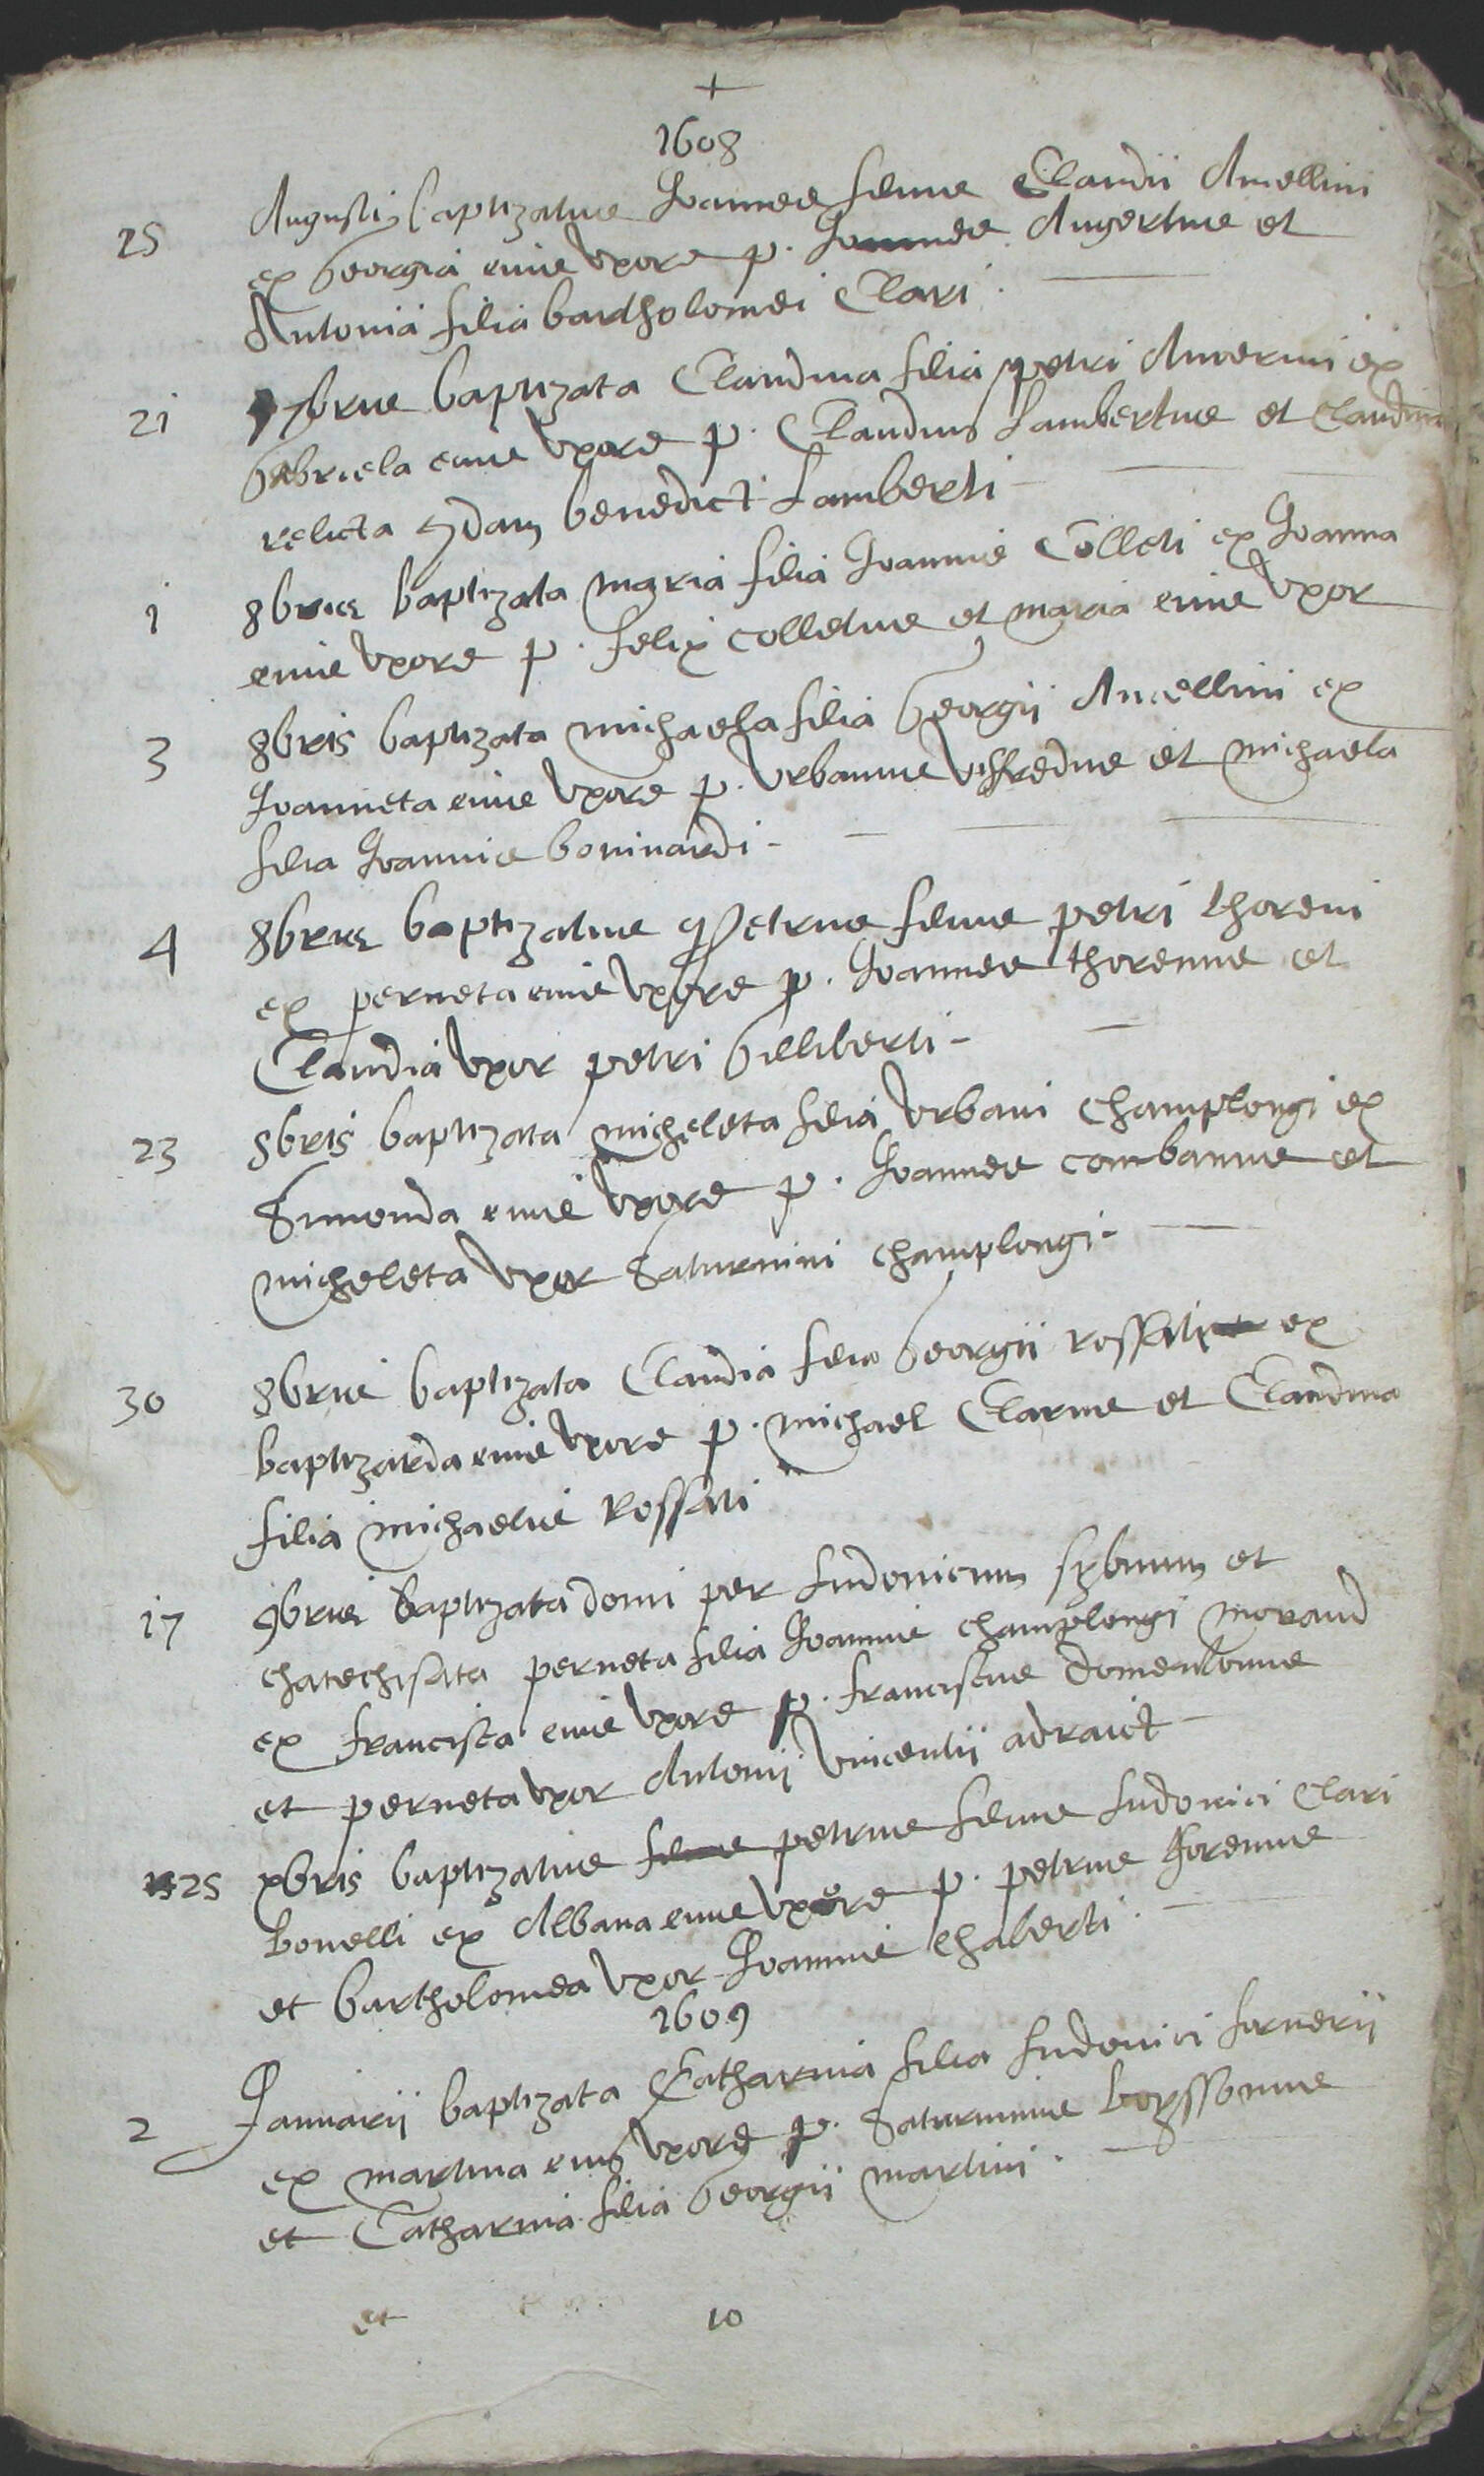 +
1608
25 Augusti baptizatus Joannes filius Claudii Ancellini
ex Georgia eius uxore p. Joannes Augertus et
Antonia filia bartholomei Clari.
21 7bris baptizata Claudina filia petri Anverini ex
Gabriela eius uxore p. Claudius Lambertus et Claudina
relicta qdam benedicti Lamberti
1 8bris baptizata maria filia Joannis Colleti ex Joanna
eius uxore p. felix colletus et maria eius uxor
3 8bris baptizata michaela filia Georgii Ancellini ex
Joanneta eius uxore p. Urbanus Uffredus et michaela
filia Joannis boninardi
4 8bris baptizatus Petrus filius petri thoreni
ex perneta eius uxore p. Joannes thorenus et
Claudia uxor petri Gilliberti
23 8bris baptizata micheleta filia Urbani champlongi ex
Simonda eius uxore p. Joannes combanus et
micheleta uxor Saturnini champlongi
30 8bris baptizata Claudia filia Georgii rossati ex
baptizarda eius uxore p. michael Clarus et Claudina
filia michaelis Rossati
17 9bris baptizata domi per Ludovicum et
chatechisata perneta filia Joannis champlongi morand
ex francisca eius uxore p. franciscus domenionus
et perneta uxor Antonii vincentii adraict
25 xbris baptizatus filius petrus filius Ludovici Clari
bonelli ex Albana eius uxore p. petrus thorenus
et bartholomea uxor Joannis chaberti.
1609
2 Januarii baptizata Catharina filia Ludovici fornerii
ex martina eius uxore p. Saturninus boyssonus
et Catharina filia Georgii martini.
et
10